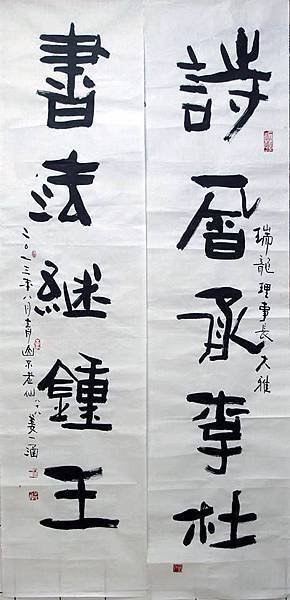 詩承李杜
瑞龍理事長大雅
書法継鍾王
二〇一三年八月青不老仙八八姜一涵